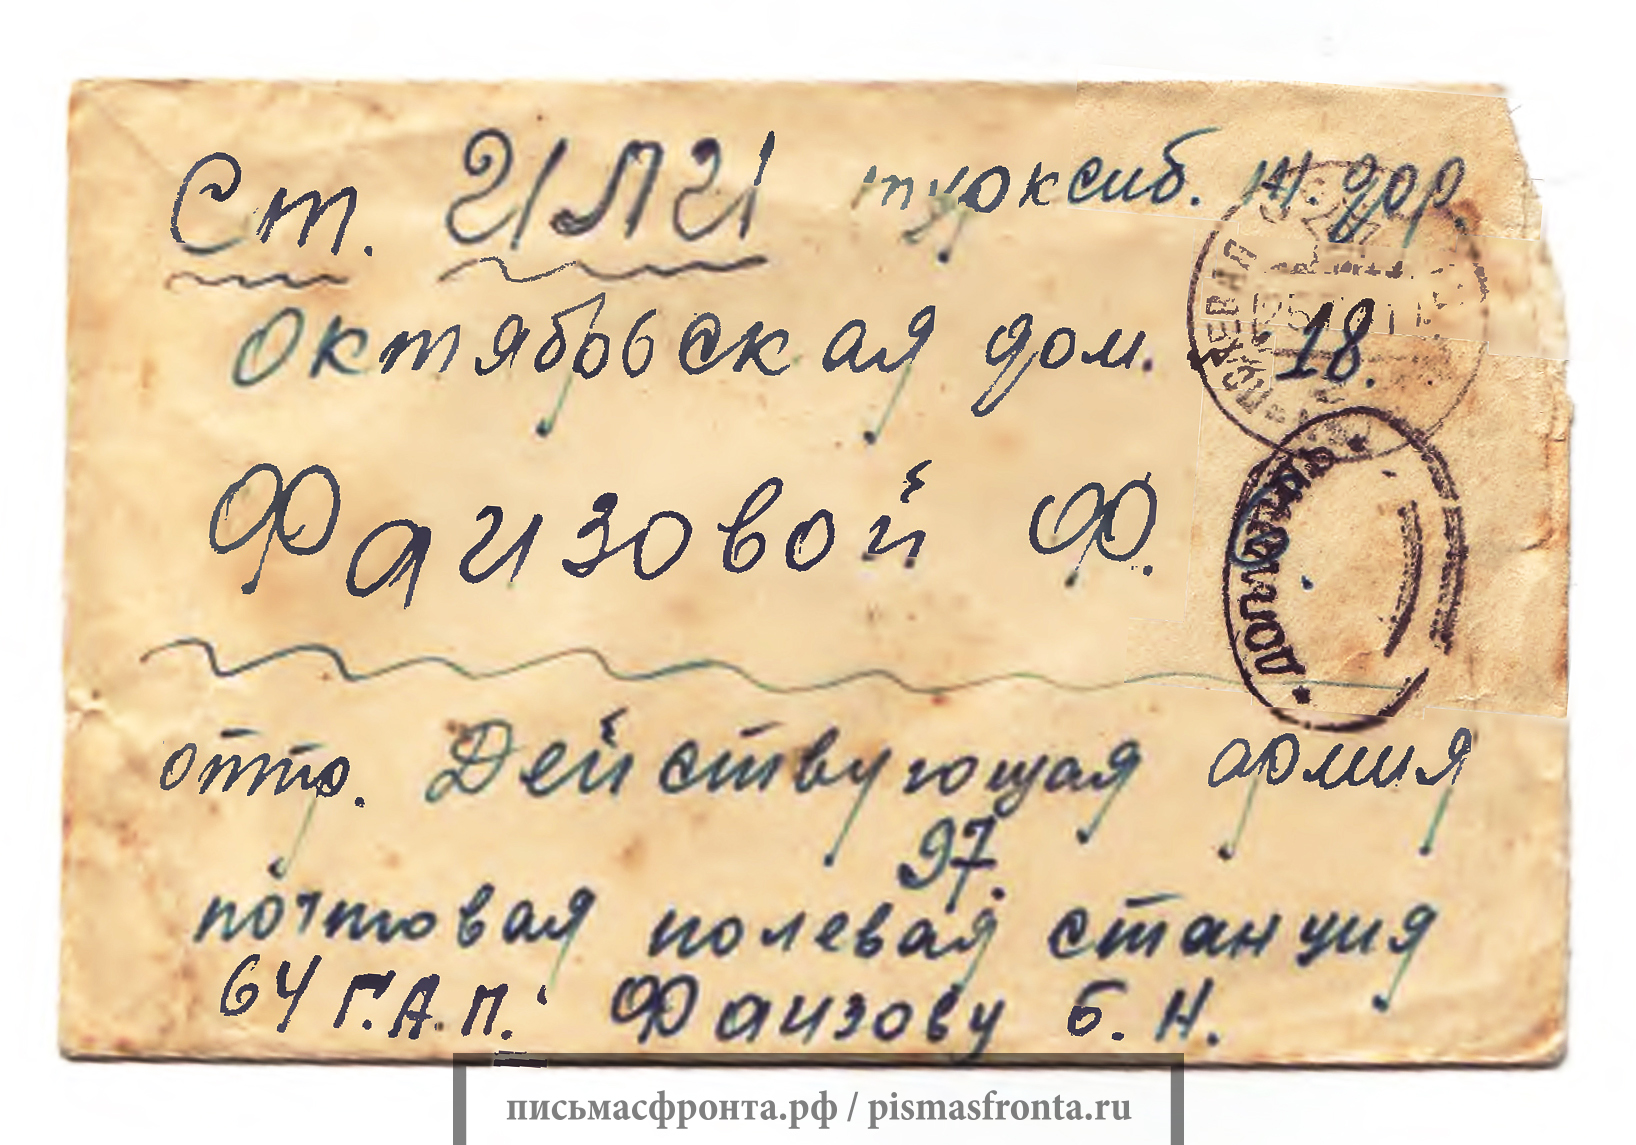 Ст. ИЛИ туркcиб. ж. дор.
Октябрьская дом. 18.
Фаизовой Ф.
отпр. Действующая армия
97.
почтовая полевая станция
64 Г.А.П. Фаизову Б. Н.
ПОЛЕВАЯ
ДОПЛАТИТЬ
письмасфронта.рф / pismasfronta.ru